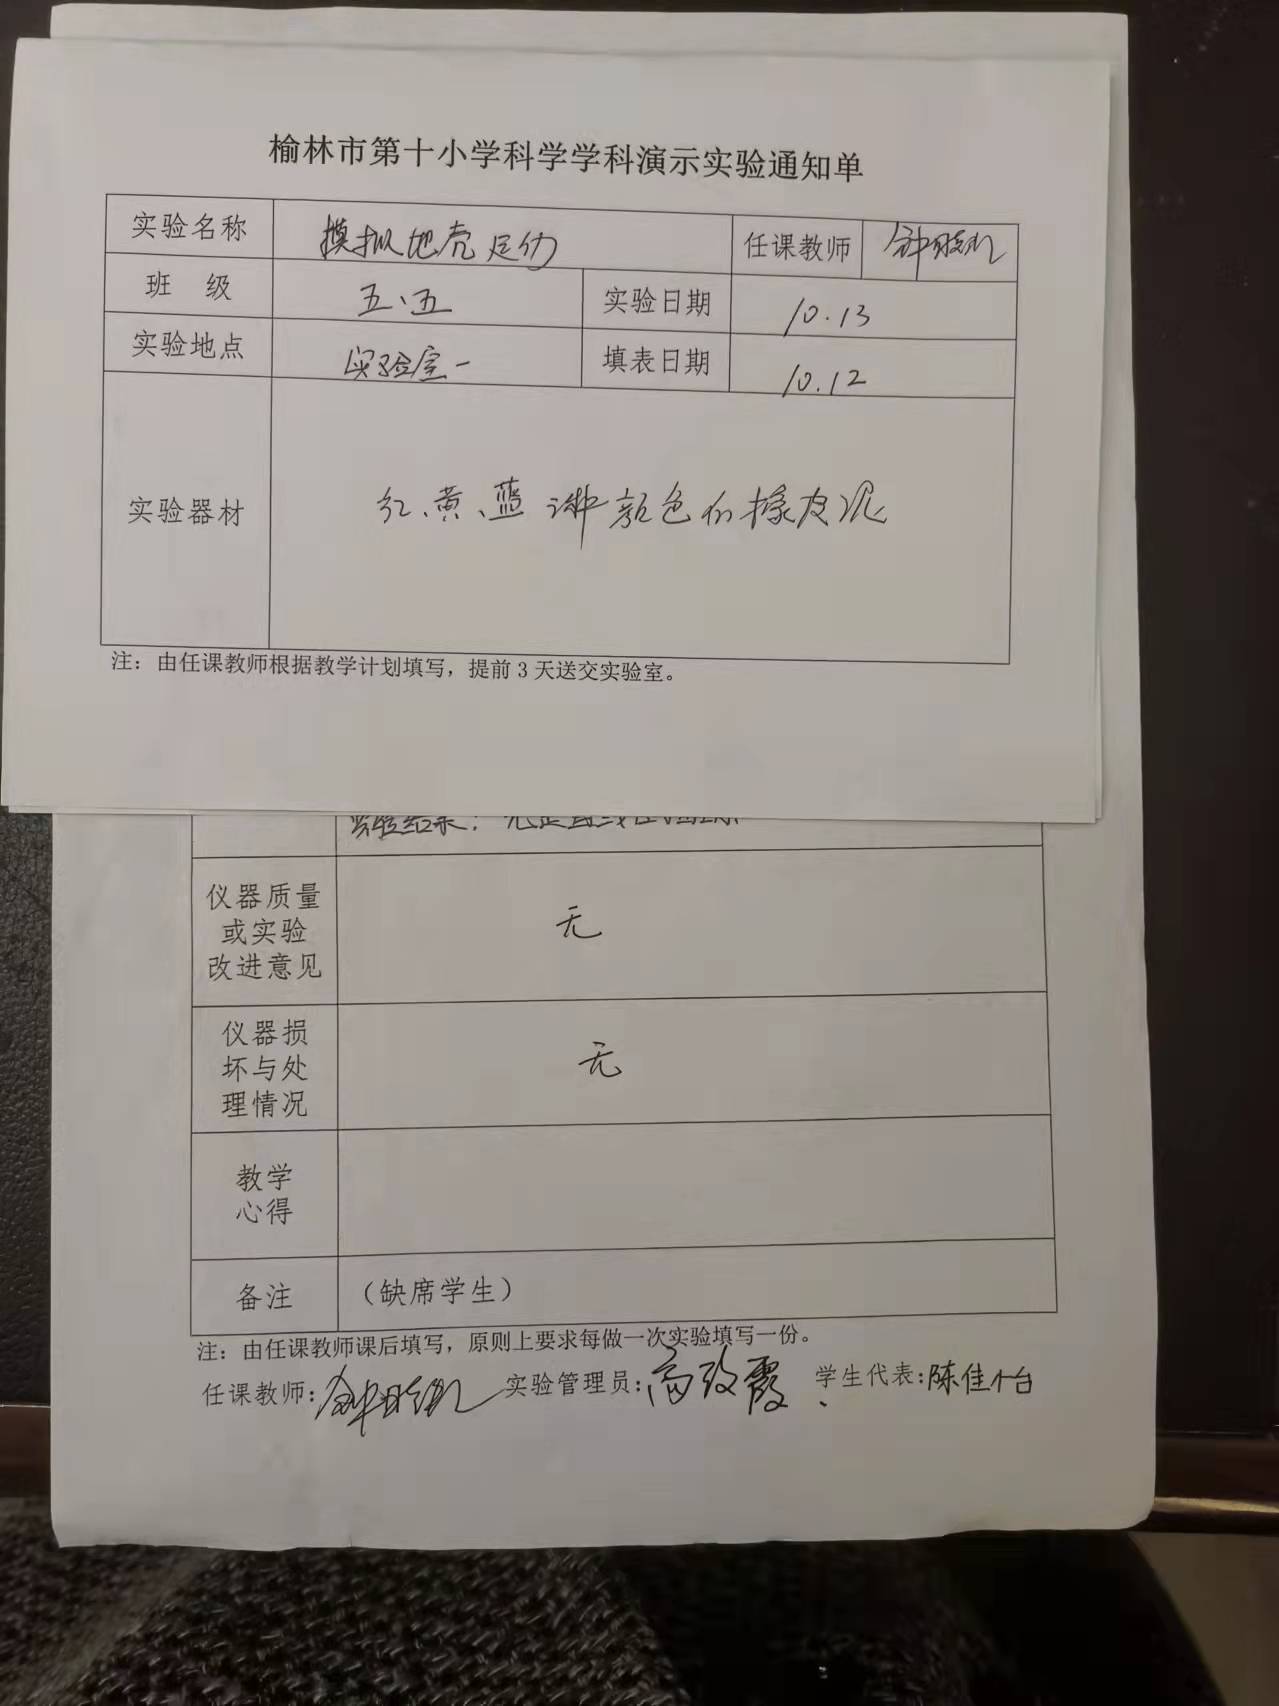 榆林市第十小学科学学科演示实验通知单
实验名称 模拟地壳运动 任课教师
班 级 五、五 实验日期 10.13
实验地点 实验室一 填表日期 10.12
实验器材 红、黄、蓝 三种颜色的橡皮泥
注：由任课教师根据教学计划填写，提前3天送交实验室。
实验结果：
仪器质量
或实验
改进意见
无
仪器损
坏与处
理情况
无
教学
心得
备注 （缺席学生）
注：由任课教师课后填写，原则上要求每做一次实验填写一份。
任课教师： 实验管理员：高改霞 学生代表：陈佳